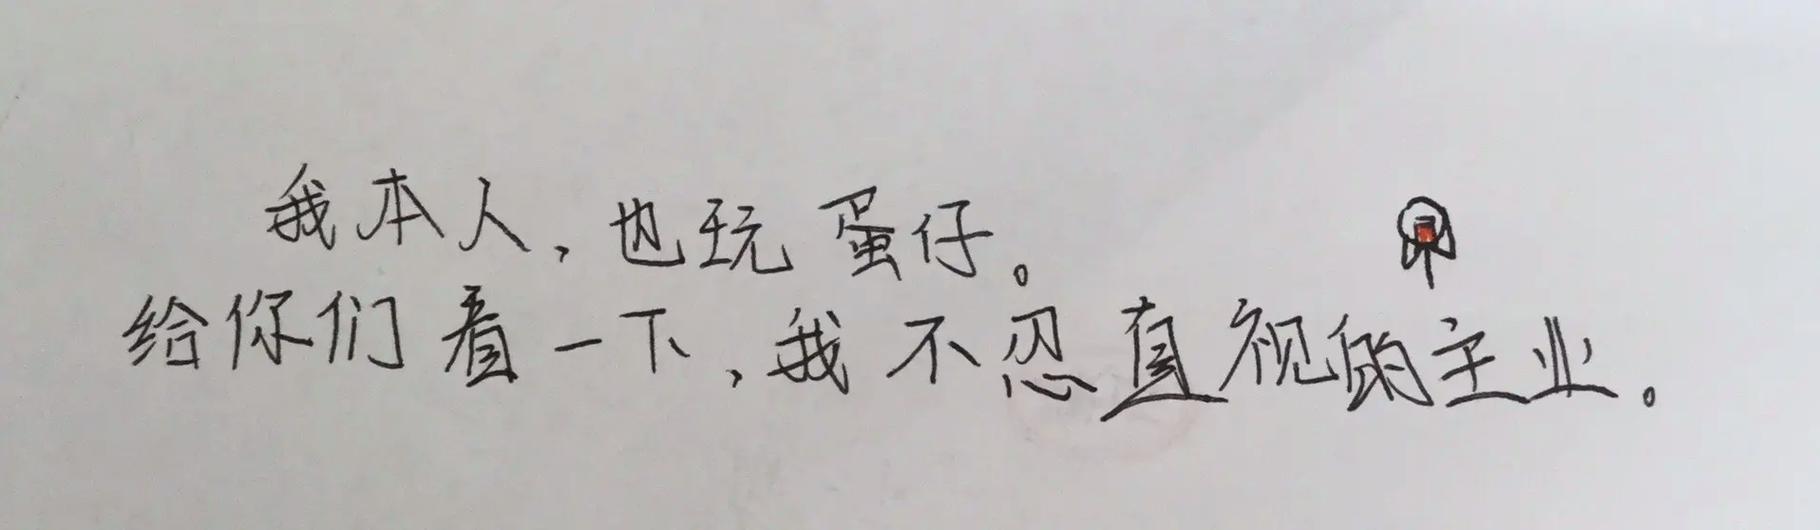 我本人，也玩蛋仔。
给你们看一下，我不忍直视的主业。